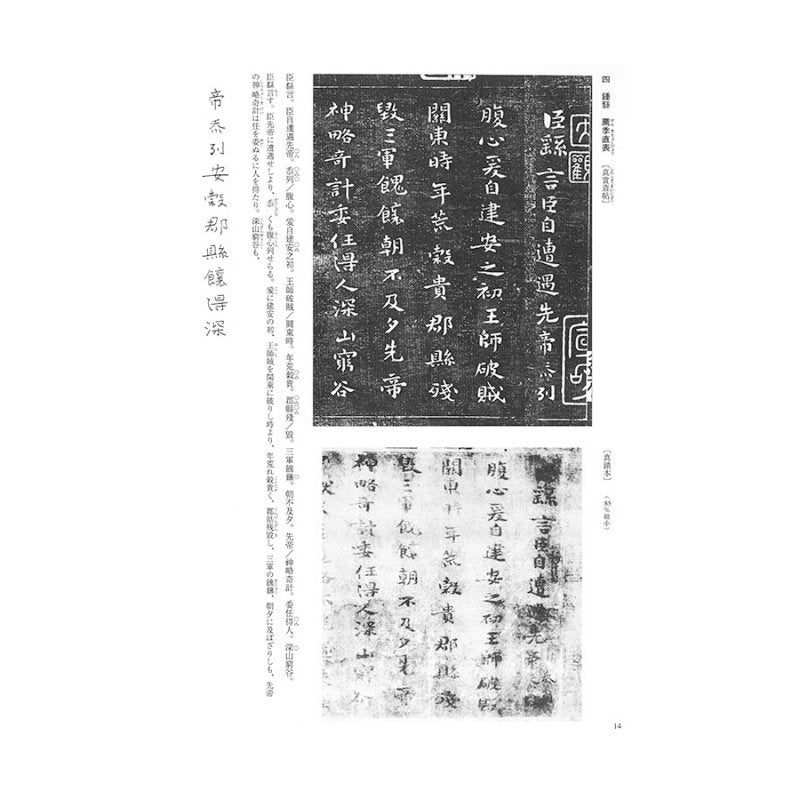 四 鍾繇 薦季直表 〔真賞斎帖〕
臣繇言臣自遭遇先帝忝列
腹心爰自建安之初王師破賊
關東時年荒穀貴郡縣殘
毀三軍餽饟朝不及夕先帝
神略奇計委任得人深山窮谷
〔真蹟本〕 (85%縮小)
繇言臣自遭遇先帝
腹心爰自建安之初王師破賊
關東時年荒穀貴郡縣殘
毀三軍餽饟朝不及夕先帝
神略奇計委任得人深山窮谷
臣繇言。臣自遭遇先帝。忝列／腹心。爰自建安之初。王師破賊／關東時。年荒穀貴。郡縣殘／毀。三軍餽饟。朝不及夕。先帝／神略奇計。委任得人。深山窮谷。
臣繇言す。臣先帝に遭遇せしより、忝くも腹心列せらる。爰に建安の初、王師賊を関東に破りし時より、年荒れ穀貴く、郡県残毀し、三軍の餽饟、朝夕に及ばざりしも、先帝
の神略奇計は任を委ぬるに人を得たり。深山窮谷も、
帝忝列安穀郡縣饟得深
14